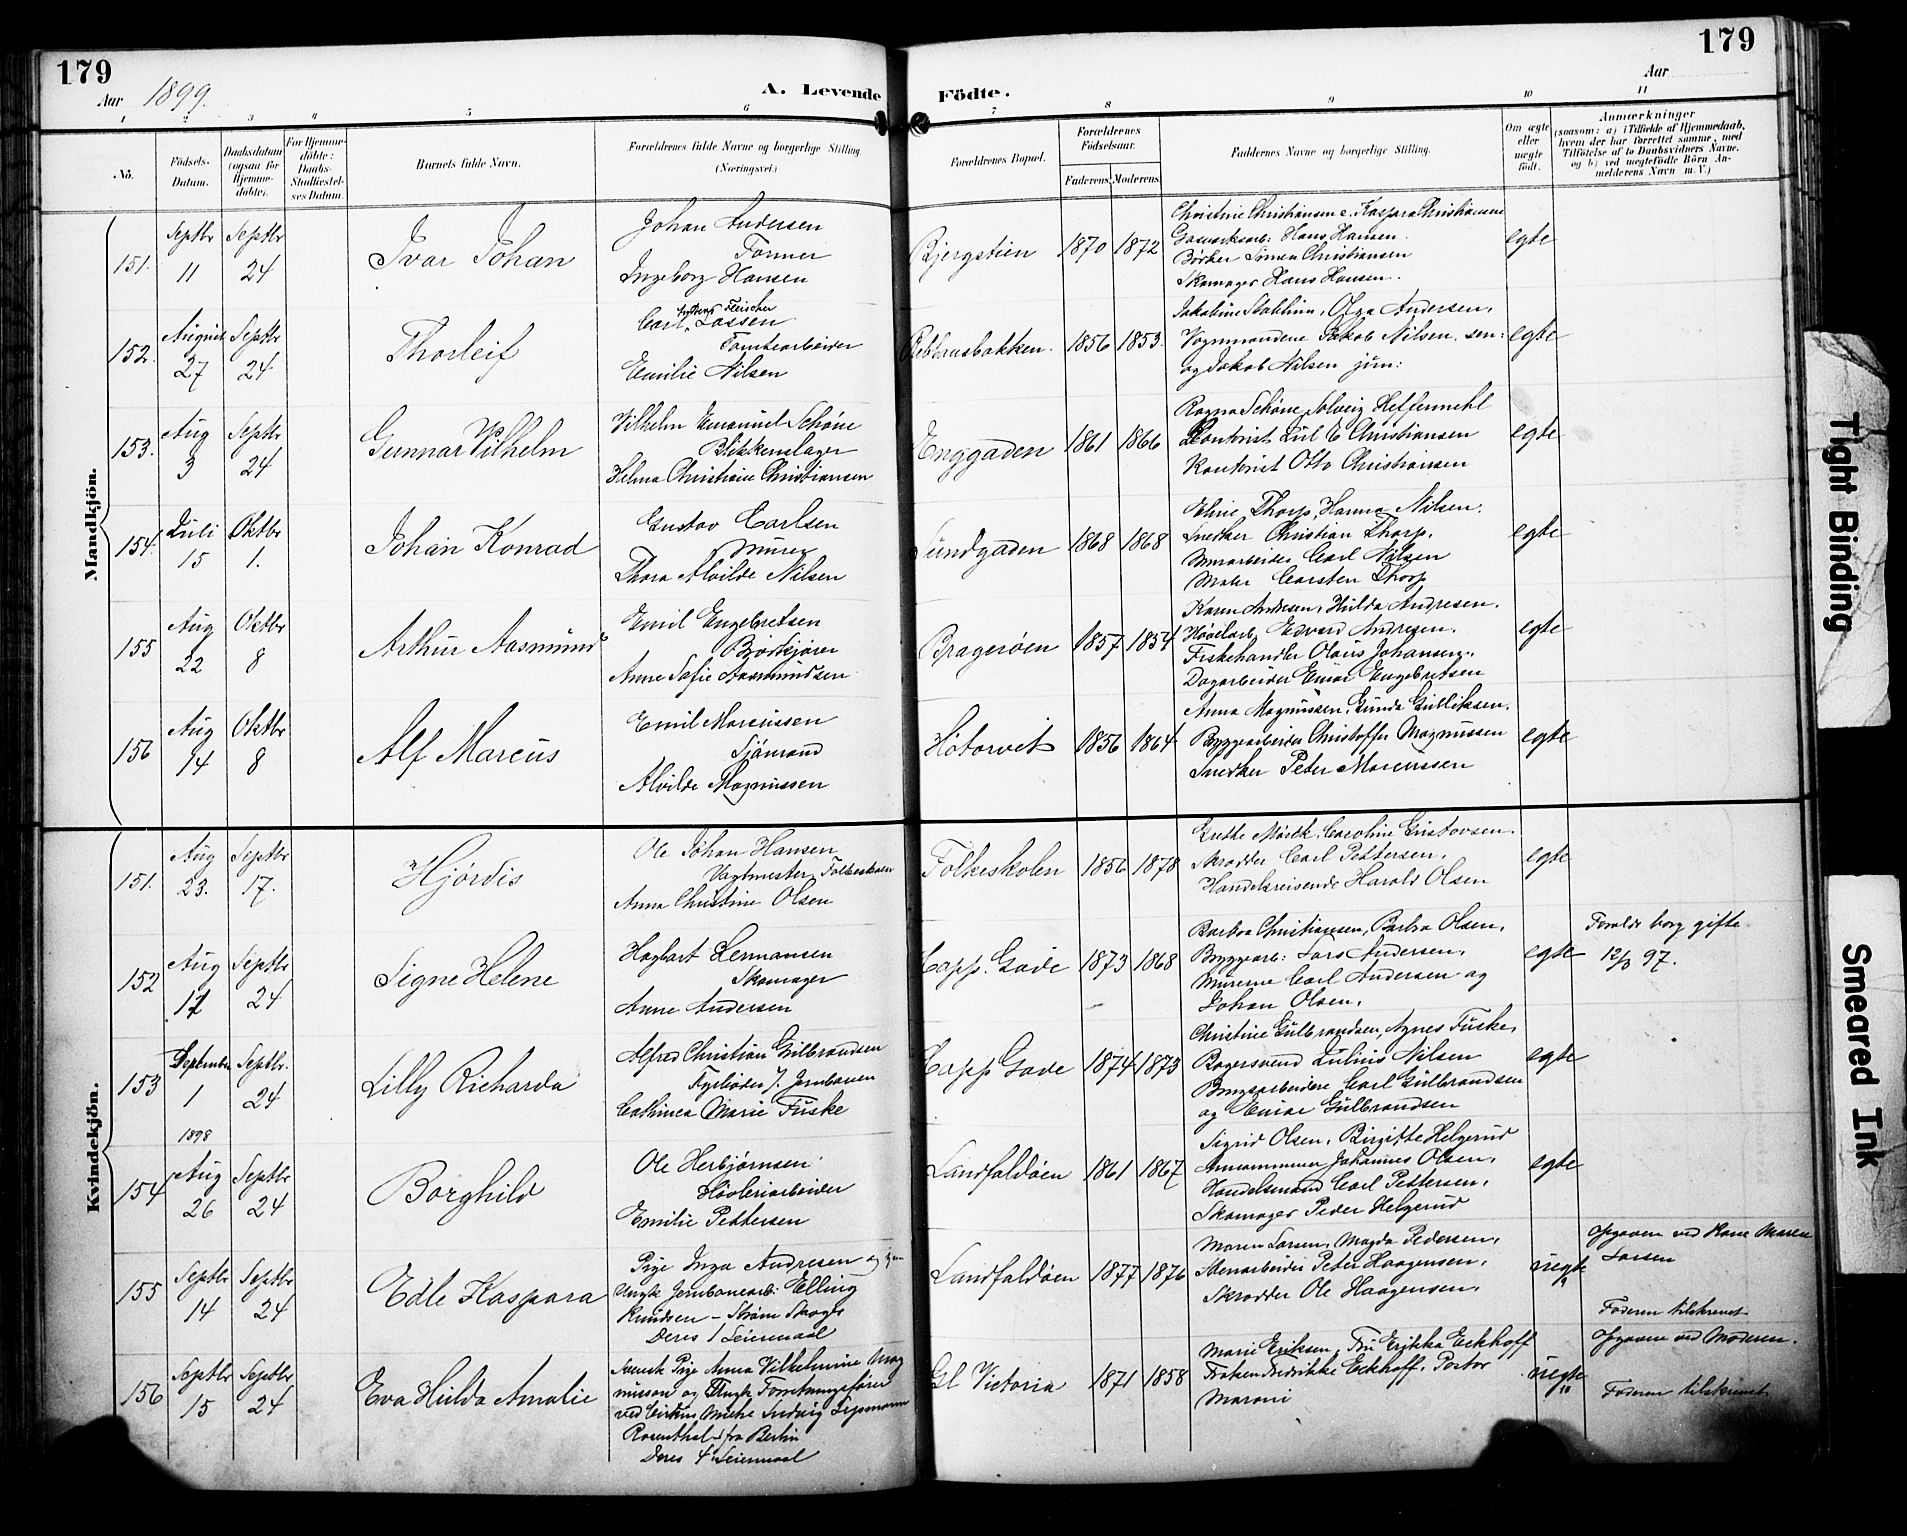 179
Aar 1899.
A. Levende
Födte.
179
Aar
1
2
3
4
5
6
7
8
9
10
11
No.
Födsels-
Datum.
Daabsdatum
(ogsaa for
Hjemme-
döbte).
For Hjemme-
döbte:
Daabs-
Stadfæstel-
ses Datum.
Barnets fulde Navn.
Forældrenes fulde Navne og borgerlige Stilling.
(Næringsvei.)
Forældrenes Bopæl.
Forældrenes
Födselsaar.
Faderens.
Moderens.
Faddernes Navne og borgerlige Stilling.
Om ægte
eller
uægte
födt.
Anmærkninger
(saasom: a) i Tilfælde af Hjemmedaab,
hvem der har forrettet samme, med
Tilföielse af to Daabsvidners Navne,
og b) ved uegtefödte Börn An-
melderens Navn m. V.)
Mandkjön.
151.
Septbr
11
Septbr
24
Ivar Johan
Johan Andersen
Former
Ingeborg Hansen
Bjergstien
1870
1872
Christine Christiansen e. Kaspara Christiansen
Gasverksarb: Hans Hansen.
Bödker Simen Christiansen
Skomager Hans Hansen.
egte
152.
August
27
Septbr
24
Thorleif
Carl Fischer Lassen
Tomtearbeider
Emilie Nilsen
Reblausbakken.
1856
1853.
Jakobine Olga Andersen,
Vognmændene Jakob Nilsen sen:
og Jakob Nilsen jun:
egte
153.
Aug
3
Septbr
24
Gunnar Vilhelm
Vilhelm Emanuel Schöne
Blikkenslager
Helma Christiane Christiansen
Enggaden
1861
1866
Ragna Schöne, Solveig Heffermehl
Kontorist Jul E Christiansen
Kontorist Otto Christiansen
egte
154.
Juli
15
Oktbr
1.
Johan Konrad
Gustav Carlsen
Murer
Thora Alvilde Nilsen
Sundgaden
1868
1868
Eline Thorp, Hanna Nilsen.
Snedker Christian Thorp.
Murarbeider Carl Nilsen
Maler Carsten Thorp
egte
155
Aug
22
Oktbr
8
Arthur Aasmund
Emil Engebretsen
Bordkjører
Anne Sofie Aasmundsen
Bragerøen
1857
1854
Karen Andresen, Hulda Andresen.
Høvlarb. Edvard Andresen.
Fiskehandler Olaus Johansen.
Dagarbeider Einar Engebretsen
egte
156
Aug
14
Oktbr
8
Alf Marcus
Emil Marcussen
Sjømand
Alvilde Magnussen
Høtorvet
1856
1864
Anna Magnussen, Gunda Gulliksen.
Byggearbeider Christoffer Magnussen
Snedker Peter Marcussen
egte
Kvindekjön.
151.
Aug
23.
Septbr
17.
Hjördis
Ole Johan Hansen
Vagtmester, Folkeskolen
Anna Christine Olsen
Folkeskolen
1856
1878
Grethe Mörck, Caroline Gustavsen.
Skrædder Carl Pettersen.
Handelsreisende Harald Olsen
egte
152
Aug
17
Septbr
24
Signe Helene
Hagbart Hermansen
Skomager
Anne Andersen
Capp. Gade
1873
1868
Barbra Christiansen, Barbra Olsen,
Byggearb: Lars Andersen,
Murerne Carl Andersen og
Johan Olsen.
egte
Foreldr borg gifte
12/3 97.
153
September
1
Septbr.
24
Lilly Richarda
Alfred Christian Gulbrandsen
Fyrbøder v. Jernbanen
Cathinca Marie Fuske
Capp Gade
1874
1873
Christine Gulbrandsen, Agnes Fuske,
Bagersvend Julius Nilsen
Brugsarbeidere Carl Gulbrandsen
og Einar Gulbrandsen
egte
154
1898
Aug
26
Septbr
24
Borghild
Ole Herbjørnsen
Høvleriarbeider
Emilie Pettersen
Landfaldøen
1861
1867
Sigrid Olsen, Birgitte Helgerud
Johannes Olsen,
Handelsmand Carl Pettersen,
Skomager Peder Helgerud
egte
155
Septbr
14
Septbr
24
Edle Kaspara
Pige Inga Andresen og
Ungk Jernbanearb: Elling
Knudsen - Strøm Skoger
Deres 1 Leiermaal
Landfaldøen
1877
1876
Maren Larsen, Magda Pedersen,
Stenarbeider Peter Haagensen,
Skrædder Ole Haagensen,
uegte
Opgaven ved Kone Maren
Larsen
Faderen tilskrevet
156
Septbr
15
Septbr
24
Eva Hulda Amalie
Svensk Pige Anna Vilhelmine Mag
nusson og Ungk Forretningsfører
ved Cirkus Ludvig
Rosenthal fra Berlin
Deres 4 Leiermaal
Gl Victoria
1871
1858
Marie Eriksen, Fru Erikka Eckhoff
Frøken Fredrikke Eckhoff, Pastor
Maroni
uegte
Opgaven ved Moderen.
Faderen tilskrevet
Tight Binding
Smeared Ink